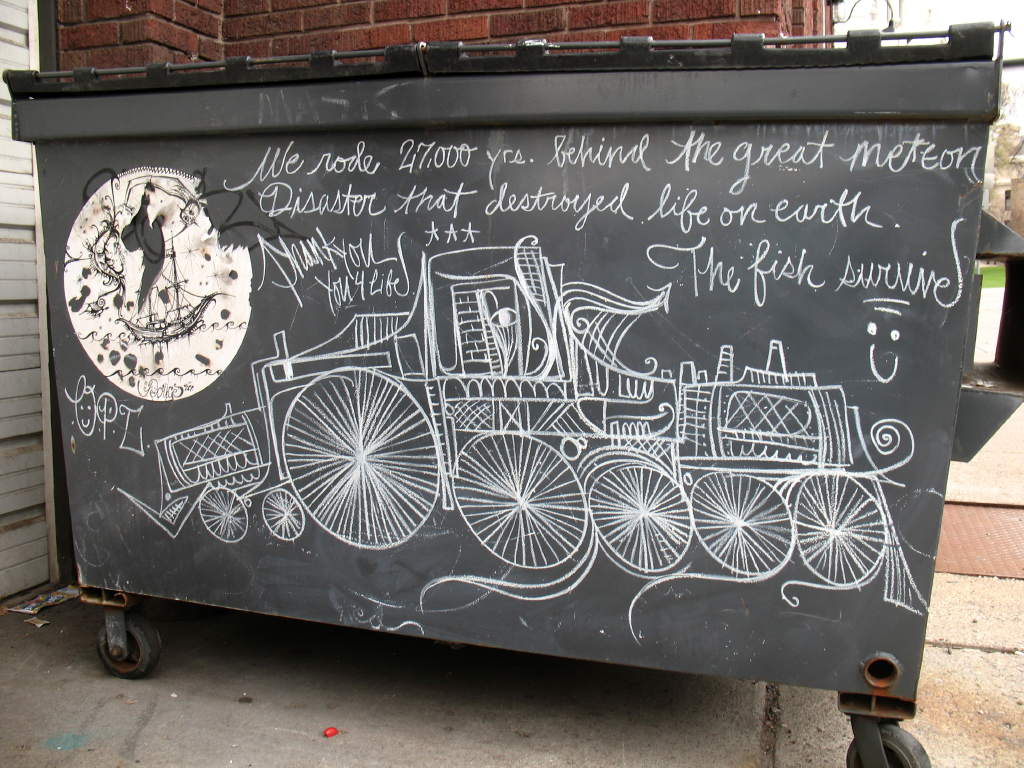 We rode 27.000 yrs. behind the great meteor
Disaster that destroyed life on earth.
Thank you
You 4 Life
***
The fish survive